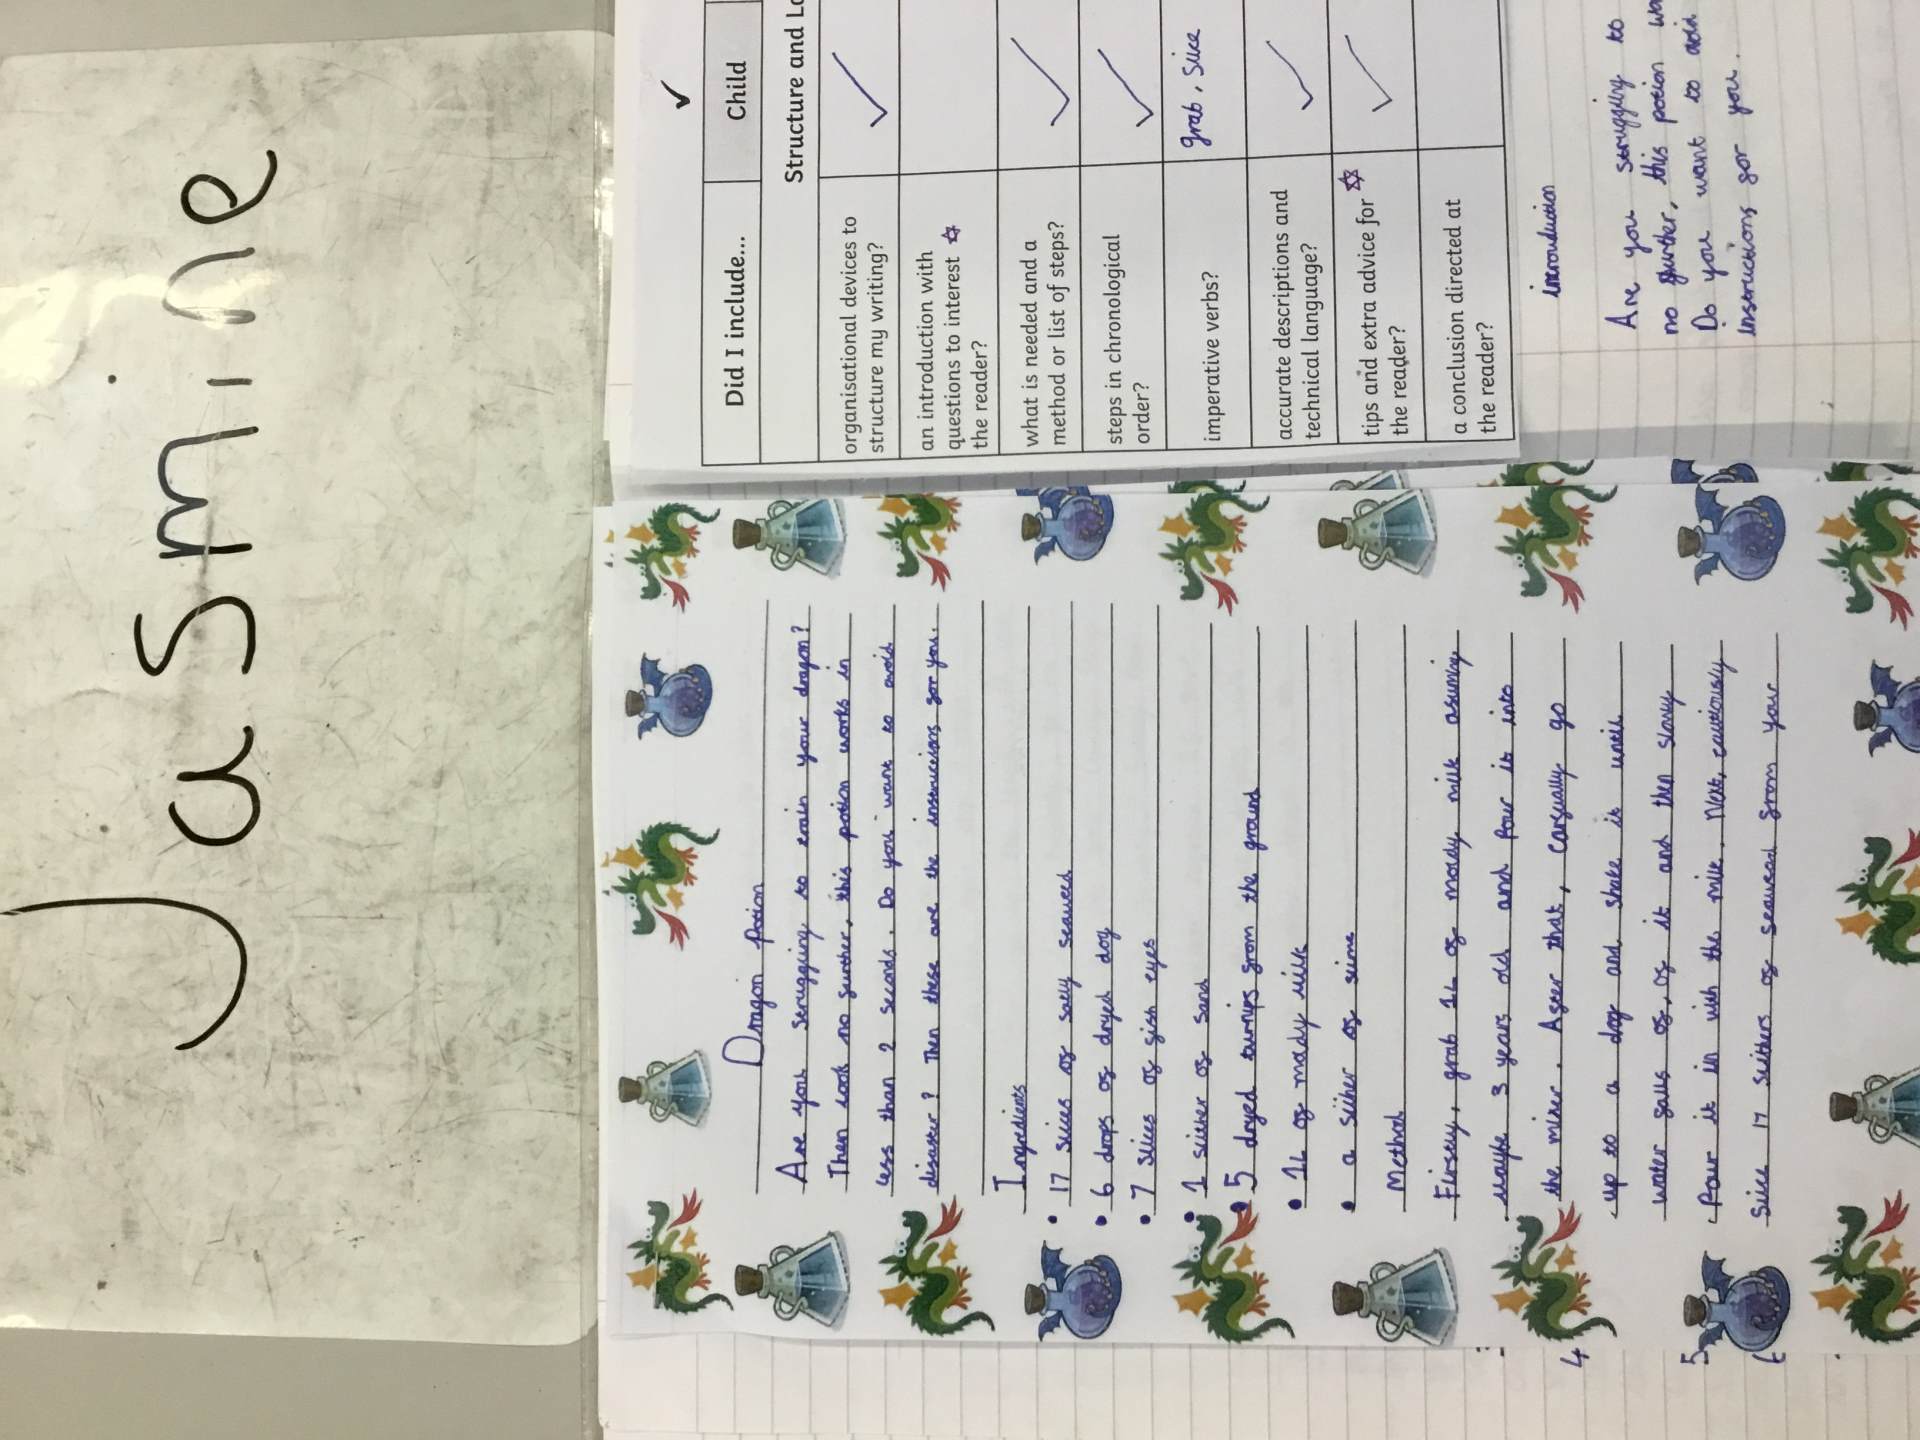 Jasmine
Did I include...
Child
Structure and
organisational devices to
structure my writing?
an introduction with
questions to interest
the reader?
what is needed and a
method or list of steps?
steps in chronological
order?
imperative verbs?
grab, slice
accurate descriptions and
technical language?
tips and extra advice for
the reader?
a conclusion directed at
the reader?
introduction
Are you struggling to
no further, this potion
Do you want to
instructions for you.
Dragon Potion
Are you struggling to train your dragon?
Then look no further, this potion works in
less than 2 seconds. Do you want to avoid
disaster? Then these are the instructions for you.
Ingredients
• 17 slices of salty seaweed
• 6 drops of dryed dog
• 7 slices of fish eyes
• 1 slither of sand
• 5 dryed turnips from the ground
• 1L of mady milk
• a slither of slime
Method
Firsly, grab 1L of moady milk asuming
maybe 3 years old and Pour it into
the mixer. After that, Carefully go
up to a dog and shake it until
water falls of, of it and then slowly
Pour it in with the milk. Next, cautiously
Slice 17 slithers of seaweed from your
4
5